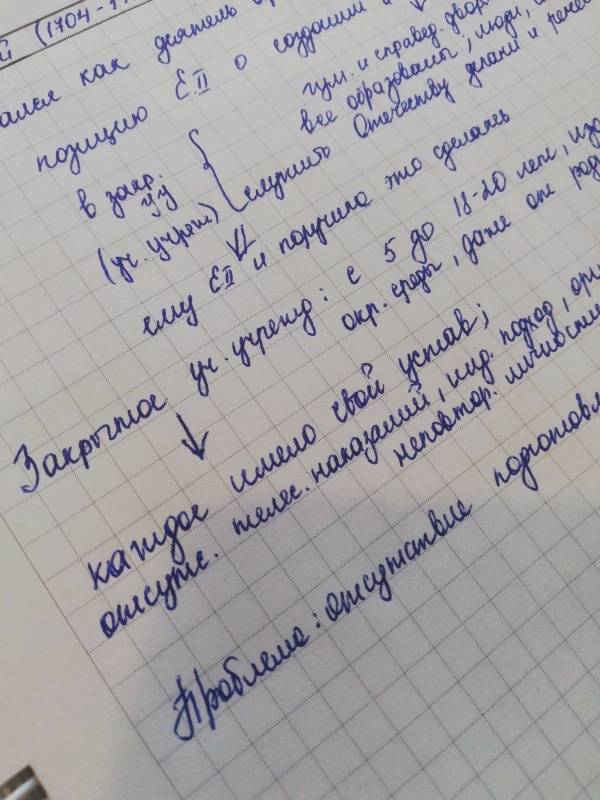 й (1704-17
ался как деятель
позицию ЕII о создании
гум. и справед. двор
в закр. все образованы, люди,
уу служить Отечеству делами и
(уч. учреж)
ему ЕII и поручила это сделать
Закрытое уч. учрежд: с 5 до 18-20 лет, изо
окр. среды, даже от род
каждое имело свой устав;
отсутс. телес. наказаний, инд. подход,
неповтор. личности
Проблема: отсутствие подготовл